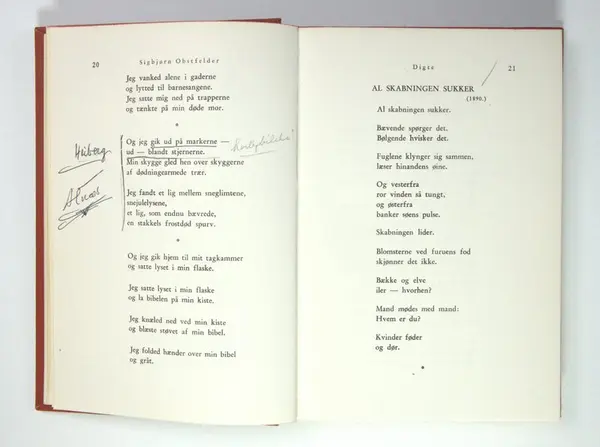 20
Sigbjørn Obstfelder
Jeg vanked alene i gaderne
og lytted til barnesangene.
Jeg satte mig ned på trapperne
og tænkte på min døde mor.
*
Og jeg gik ud på markerne —
ud — blandt stjernerne.
Min skygge gled hen over skyggerne
af dødningearmede trær.
Heiberg
Jeg fandt et lig mellem sneglimtene,
snejulelysene,
et lig, som endnu bævrede,
en stakkels frostdød spurv.
*
Og jeg gik hjem til mit tagkammer
og satte lyset i min flaske.
Jeg satte lyset i min flaske
og la bibelen på min kiste.
Jeg knæled ned ved min kiste
og blæste støvet af min bibel.
Jeg folded hænder over min bibel
og gråt.
Digte
21
AL SKABNINGEN SUKKER
(1890.)
Al skabningen sukker.
Bævende spørger det.
Bølgende hvisker det.
Fuglene klynger sig sammen,
læser hinandens øine.
Og vesterfra
ror vinden så tungt,
og østerfra
banker søens pulse.
Skabningen lider.
Blomsterne ved furuens fod
skjønner det ikke.
Bække og elve
iler — hvorhen?
Mand mødes med mand:
Hvem er du?
Kvinder føder
og dør.
*